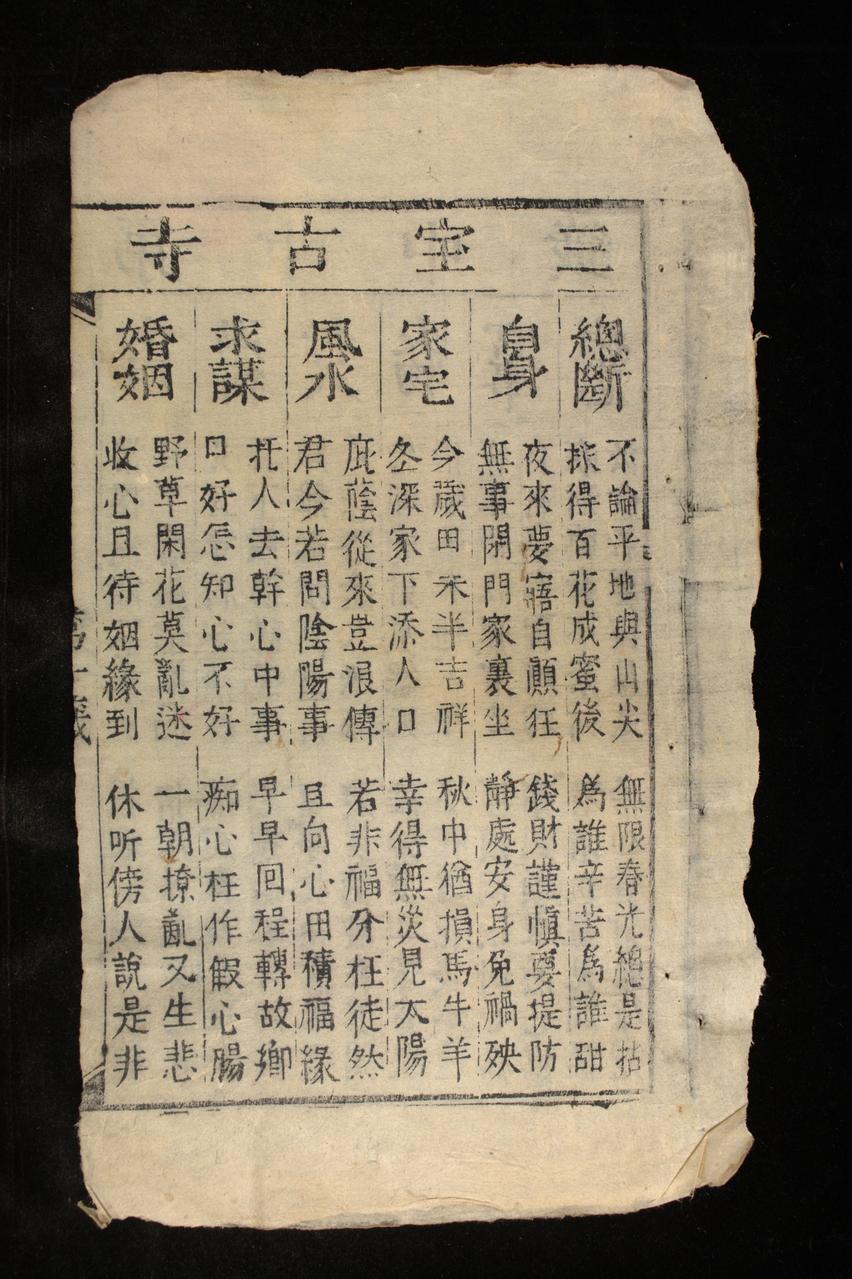 三宝古寺
總斷
不論平地與山尖 無限春光總是拈
採得百花成蜜後 爲誰辛苦爲誰甜
自身
夜來夢寤自顛狂 錢財謹慎要提防
無事閉門家裏坐 靜處安身免禍殃
家宅
今歲田禾半吉祥 秋中猶損馬牛羊
冬深家下添人口 幸得無災見太陽
風水
庇蔭從來豈浪傳 若非福分枉徒然
君今若問陰陽事 且向心田積福緣
求謀
托人去幹心中事 早早回程轉故鄉
口好怎知心不好 痴心枉作假心腸
婚姻
野草閑花莫亂迷 一朝撩亂又生悲
收心且待姻緣到 休听傍人說是非